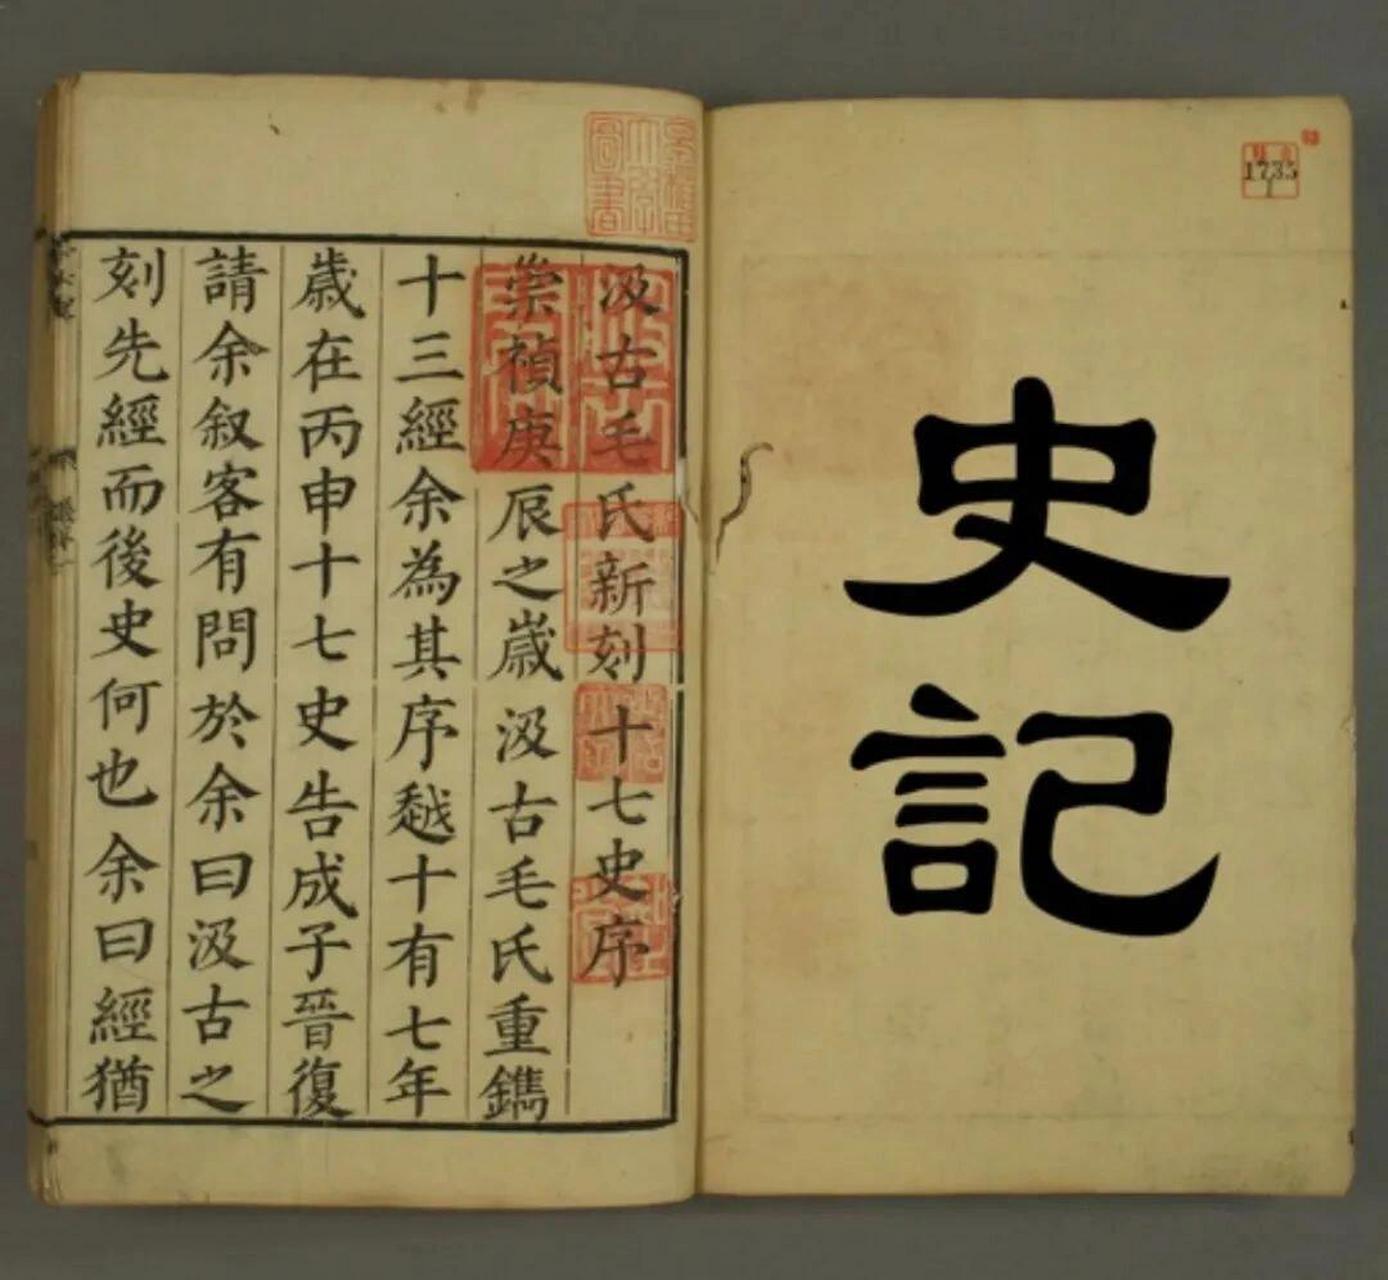 史記
1735
汲古毛氏新刻十七史序
崇禎庚辰之歲汲古毛氏重鐫
十三經余為其序越十有七年
歲在丙申十七史告成子晉復
請余叙客有問於余曰汲古之
刻先經而後史何也余曰經猶